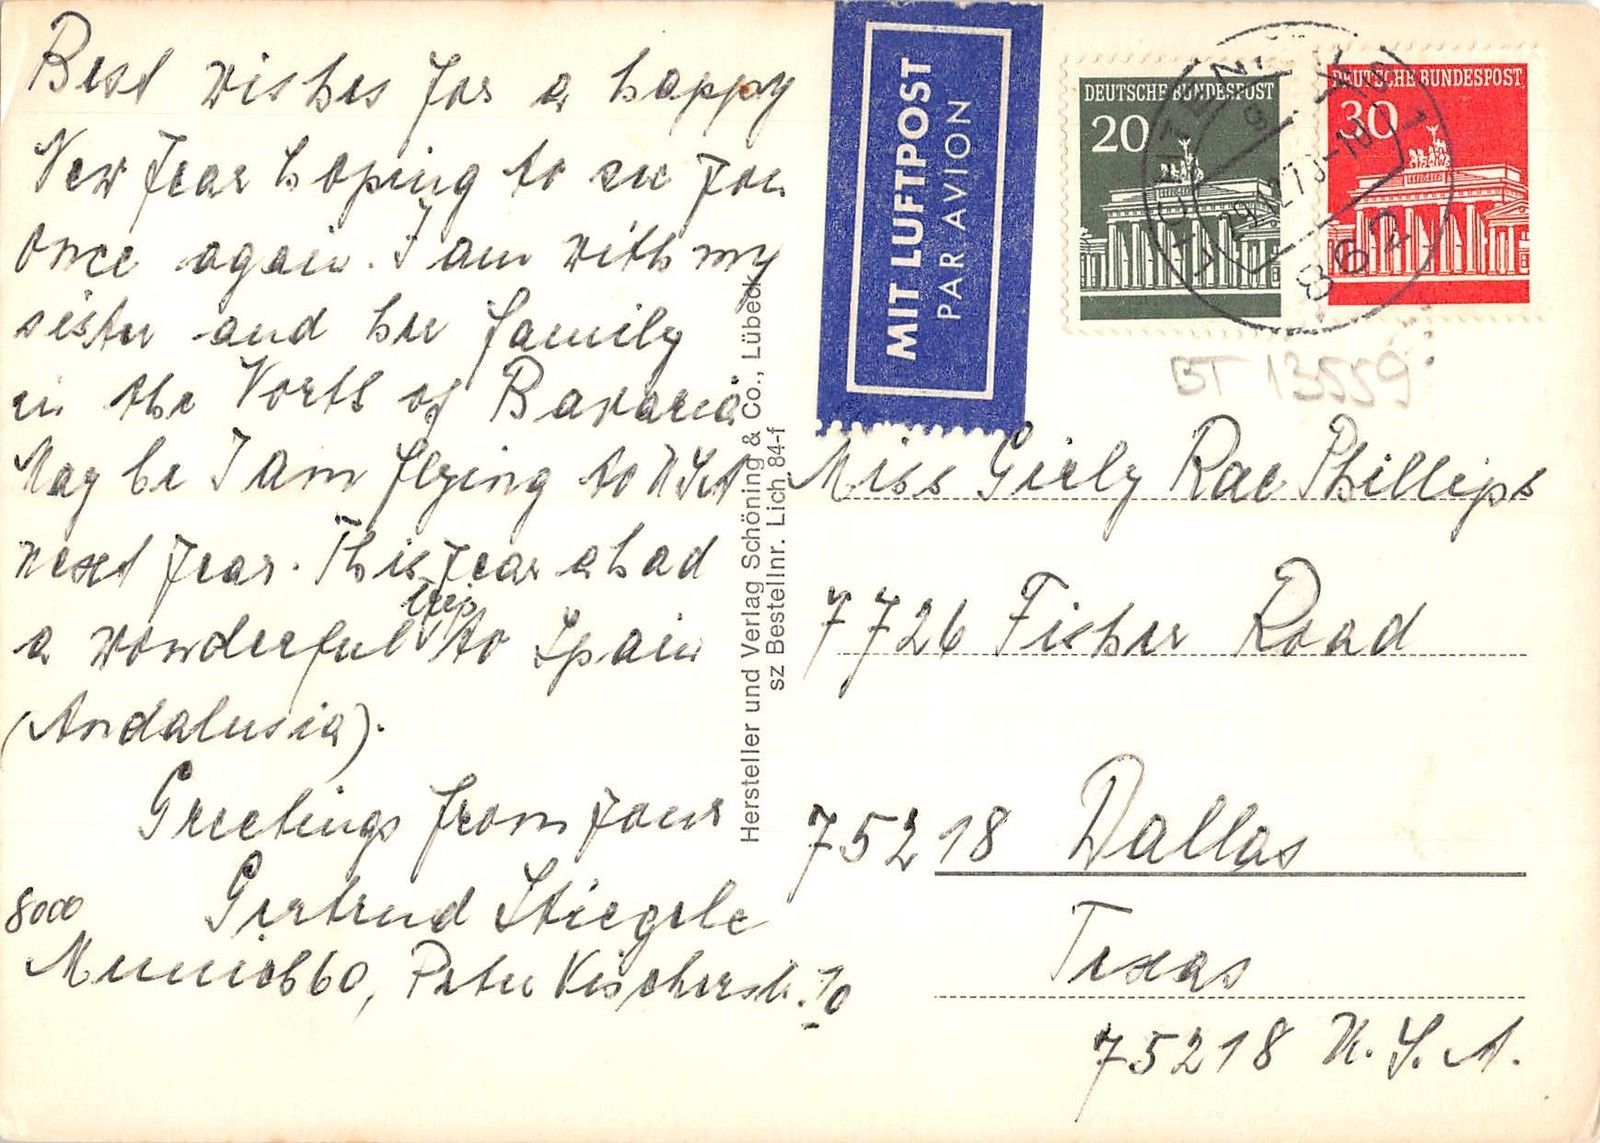 Best wishes for a happy
New Year hoping to see you
once again. I am with my
sister and her family
in the North of Bavaria
May be I am flying to USA
next year. This year a had
a wonderful trip to Spain
(Andalusia).
Greetings from your
Gertrud Stiegele
8000
Munich 60, Peter Vischerstr. 10
Hersteller und Verlag Schöning & Co., Lübeck
sz Bestellnr. Lich 84-f
MIT LUFTPOST
PAR AVION
DEUTSCHE BUNDESPOST
20
DEUTSCHE BUNDESPOST
30
862
BT 13559
Miss Gerly Rae Phillips
7726 Fisher Road
75218 Dallas
Texas
75218 U.S.A.